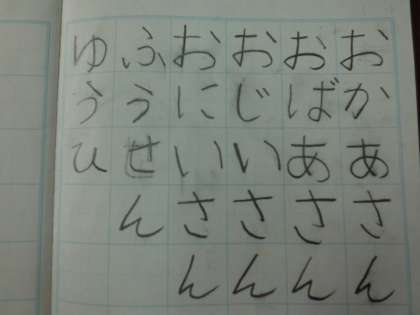 おかあさん
おばあさん
おじいさん
おにいさん
ふうせん
ゆうひ